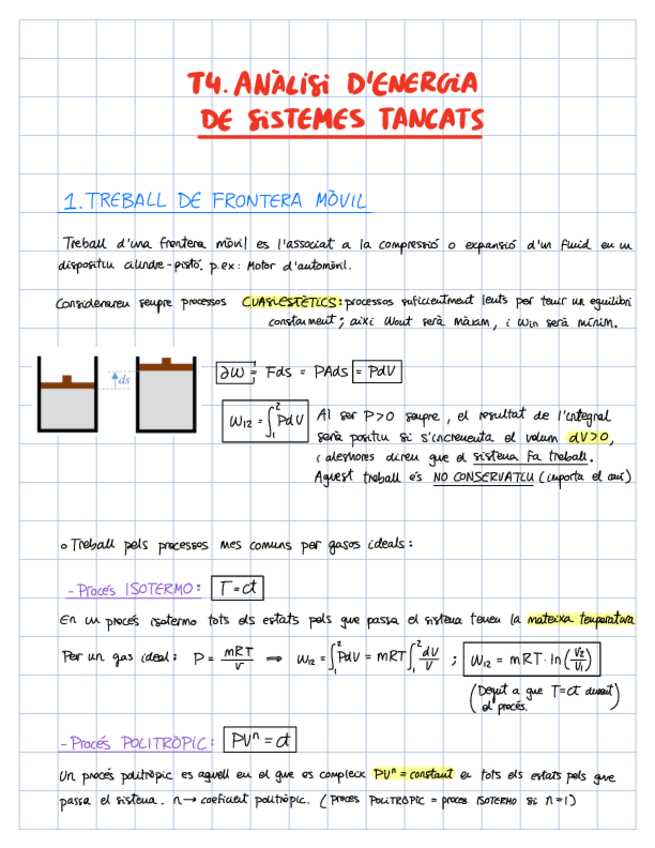 T4. ANÀLISI D'ENERGIA
DE SISTEMES TANCATS
1. TREBALL DE FRONTERA MÒVIL
Treball d'una frontera mòvil es l'associat a la compressió o expansió d'un fluid en un
dispositiu cilindre-pistó. p.ex: Motor d'automòvil.
Considerareu sempre processos CUASIESTÈTICS: processos suficientment lents per tenir un equilibri
constantment; aixi Wout serà màxim, i Win serà mínim.
ds
∂W = Fds = PAds = PdV
W12 = ∫₁² PdV
Al ser P>0 sempre, el resultat de l'integral
serà positiu si s'incrementa el volum dV>0,
i aleshores direu que el sistema fa treball.
Aquest treball és NO CONSERVATIU (importa el camí)
o Treball pels processos mes comuns per gasos ideals:
- Procés ISOTERMO: T=ct
En un procés isotermo tots els estats pels que passa el sistema tenen la mateixa temperatura
Per un gas ideal: P = mRT/V ⇒ W12 = ∫₁² PdV = mRT ∫₁² dV/V ; W12 = mRT · ln(V2/V1)
(Degut a que T=ct durant
el procés.)
- Procés POLITRÒPIC: PVⁿ = ct
Un procés politròpic es aquell en el que es compleix PVⁿ = constant en tots els estats pels que
passa el sistema. n → coeficient politròpic. (Procés POLITRÒPIC = procés ISOTERMO si n=1)